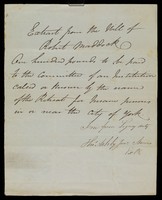 Extract from the Will of
Robert Maddock
One hundred pounds to be paid
to the Committee of an Institution
called or known by the name
of the Retreat for Insane persons
in or near the city of York